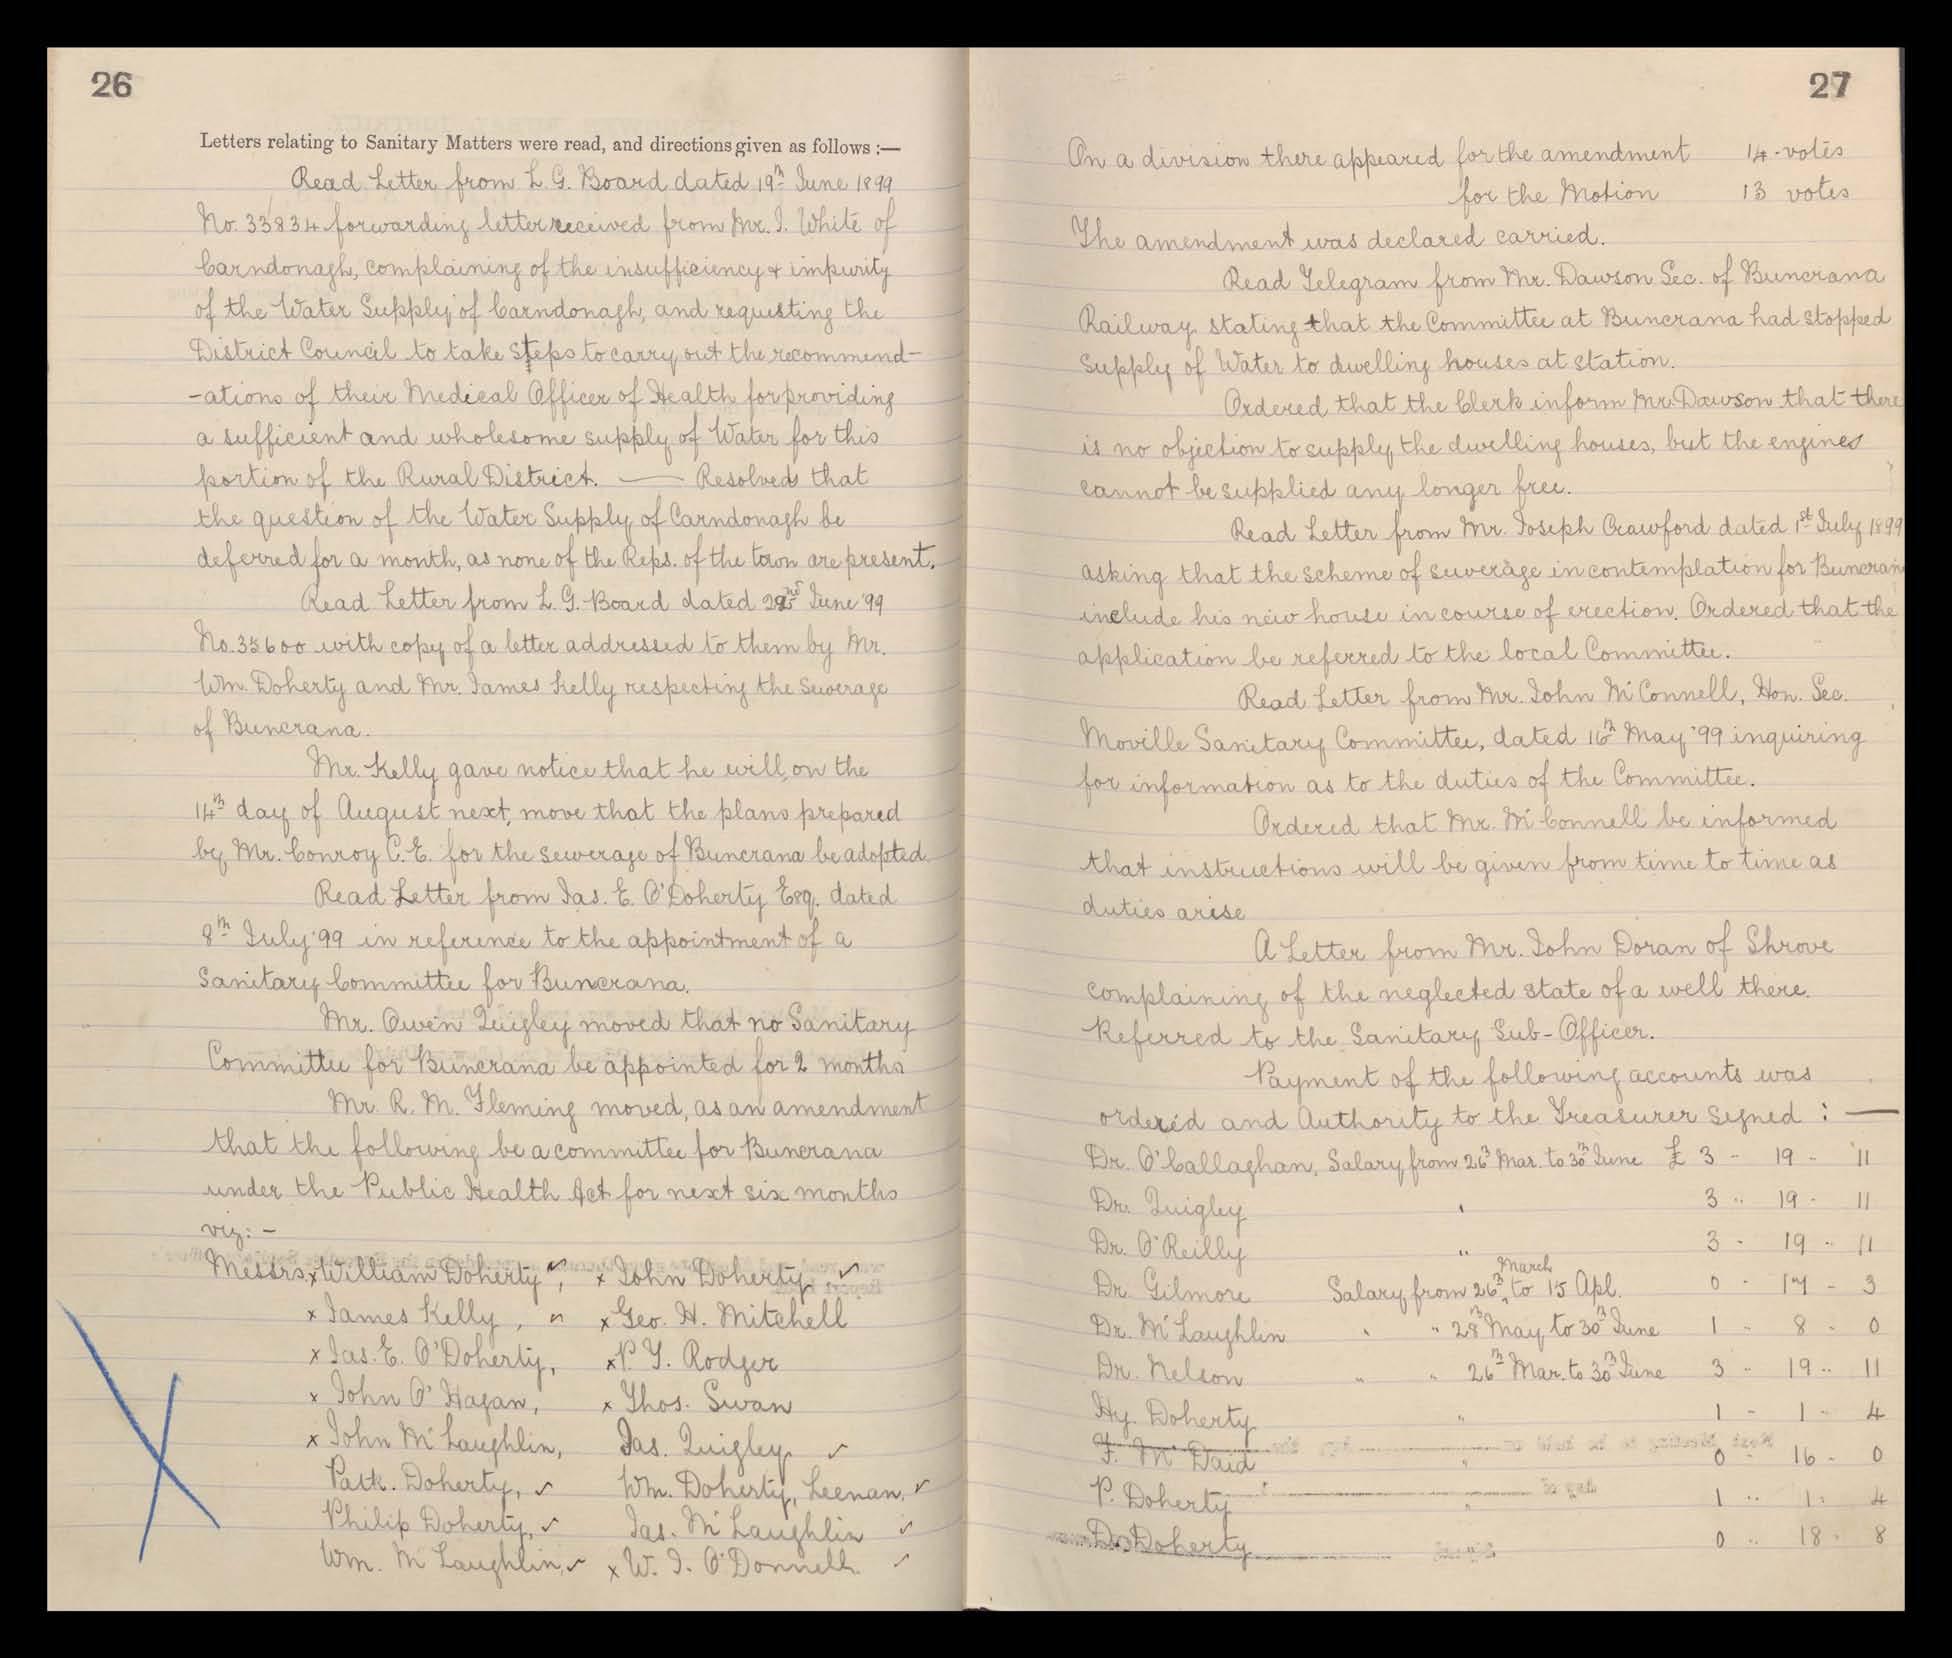 26
Letters relating to Sanitary Matters were read, and directions given as follows :—
Read Letter from L. G. Board dated 19th June 1899
No. 33834 forwarding letter received from Mr. J. White of
Carndonagh, complaining of the insufficiency & impurity
of the Water Supply of Carndonagh, and requesting the
District Council to take steps to carry out the recommend-
-ations of their Medical Officer of Health for providing
a sufficient and wholesome supply of Water for this
portion of the Rural District. — Resolved that
the question of the Water Supply of Carndonagh be
deferred for a month, as none of the Reps. of the town are present.
Read Letter from L. G. Board dated June '99
No. 35600 with copy of a letter addressed to them by Mr.
Wm. Doherty and Mr. James Kelly respecting the Sewerage
of Buncrana.
Mr. Kelly gave notice that he will, on the
14th day of August next, move that the plans prepared
by Mr. Conroy C.E. for the sewerage of Buncrana be adopted.
Read Letter from Jas. E. O'Doherty Esq. dated
8th July '99 in reference to the appointment of a
Sanitary Committee for Buncrana.
Mr. Owen Quigley moved that no Sanitary
Committee for Buncrana be appointed for 2 months
Mr. R. M. Fleming moved, as an amendment
that the following be a committee for Buncrana
under the Public Health Act for next six months
viz: -
Messrs x William Doherty ✓, x John Doherty ✓
x James Kelly, ✓ x Geo. H. Mitchell
x Jas. E. O'Doherty, x P. T. Rodger
x John O'Hagan, x Thos. Swan
x John McLaughlin, Jas. Quigley ✓
Patk. Doherty, ✓ Wm. Doherty, Leenan, ✓
Philip Doherty, ✓ Jas. McLaughlin ✓
Wm. McLaughlin, ✓ x W. J. O'Donnell ✓
27
On a division there appeared for the amendment 14 - votes
for the Motion 13 votes
The amendment was declared carried.
Read Telegram from Mr. Dawson Sec. of Buncrana
Railway stating that the Committee at Buncrana had stopped
supply of Water to dwelling houses at station.
Ordered that the Clerk inform Mr. Dawson that there
is no objection to supply the dwelling houses, but the engines
cannot be supplied any longer free.
Read Letter from Mr. Joseph Crawford dated 1st July 1899
asking that the scheme of sewerage in contemplation for Buncran
include his new house in course of erection. Ordered that the
application be referred to the local Committee.
Read Letter from Mr. John McConnell, Hon. Sec.
Moville Sanitary Committee, dated 16th May '99 inquiring
for information as to the duties of the Committee.
Ordered that Mr. McConnell be informed
that instructions will be given from time to time as
duties arise
A Letter from Mr. John Doran of Shrove
complaining of the neglected state of a well there.
Referred to the Sanitary Sub-Officer.
Payment of the following accounts was
ordered and Authority to the Treasurer signed : —
Dr. O'Callaghan, Salary from 26th Mar. to 30th June £ 3 - 19 - 11
Dr. Quigley " 3 " 19 - 11
Dr. O'Reilly " 3 - 19 - 11
Dr Gilmore Salary from 26th March to 15 Apl. 0 - 17 - 3
Dr. McLaughlin " " 28th May to 30th June 1 - 8 - 0
Dr. Nelson " " 26th Mar. to 30th June 3 " 19 " 11
Hy. Doherty " 1 - 1 - 4
F. McDaid " 0 - 16 - 0
P. Doherty " 1 " 1 " 4
Doherty 0 " 18 " 8